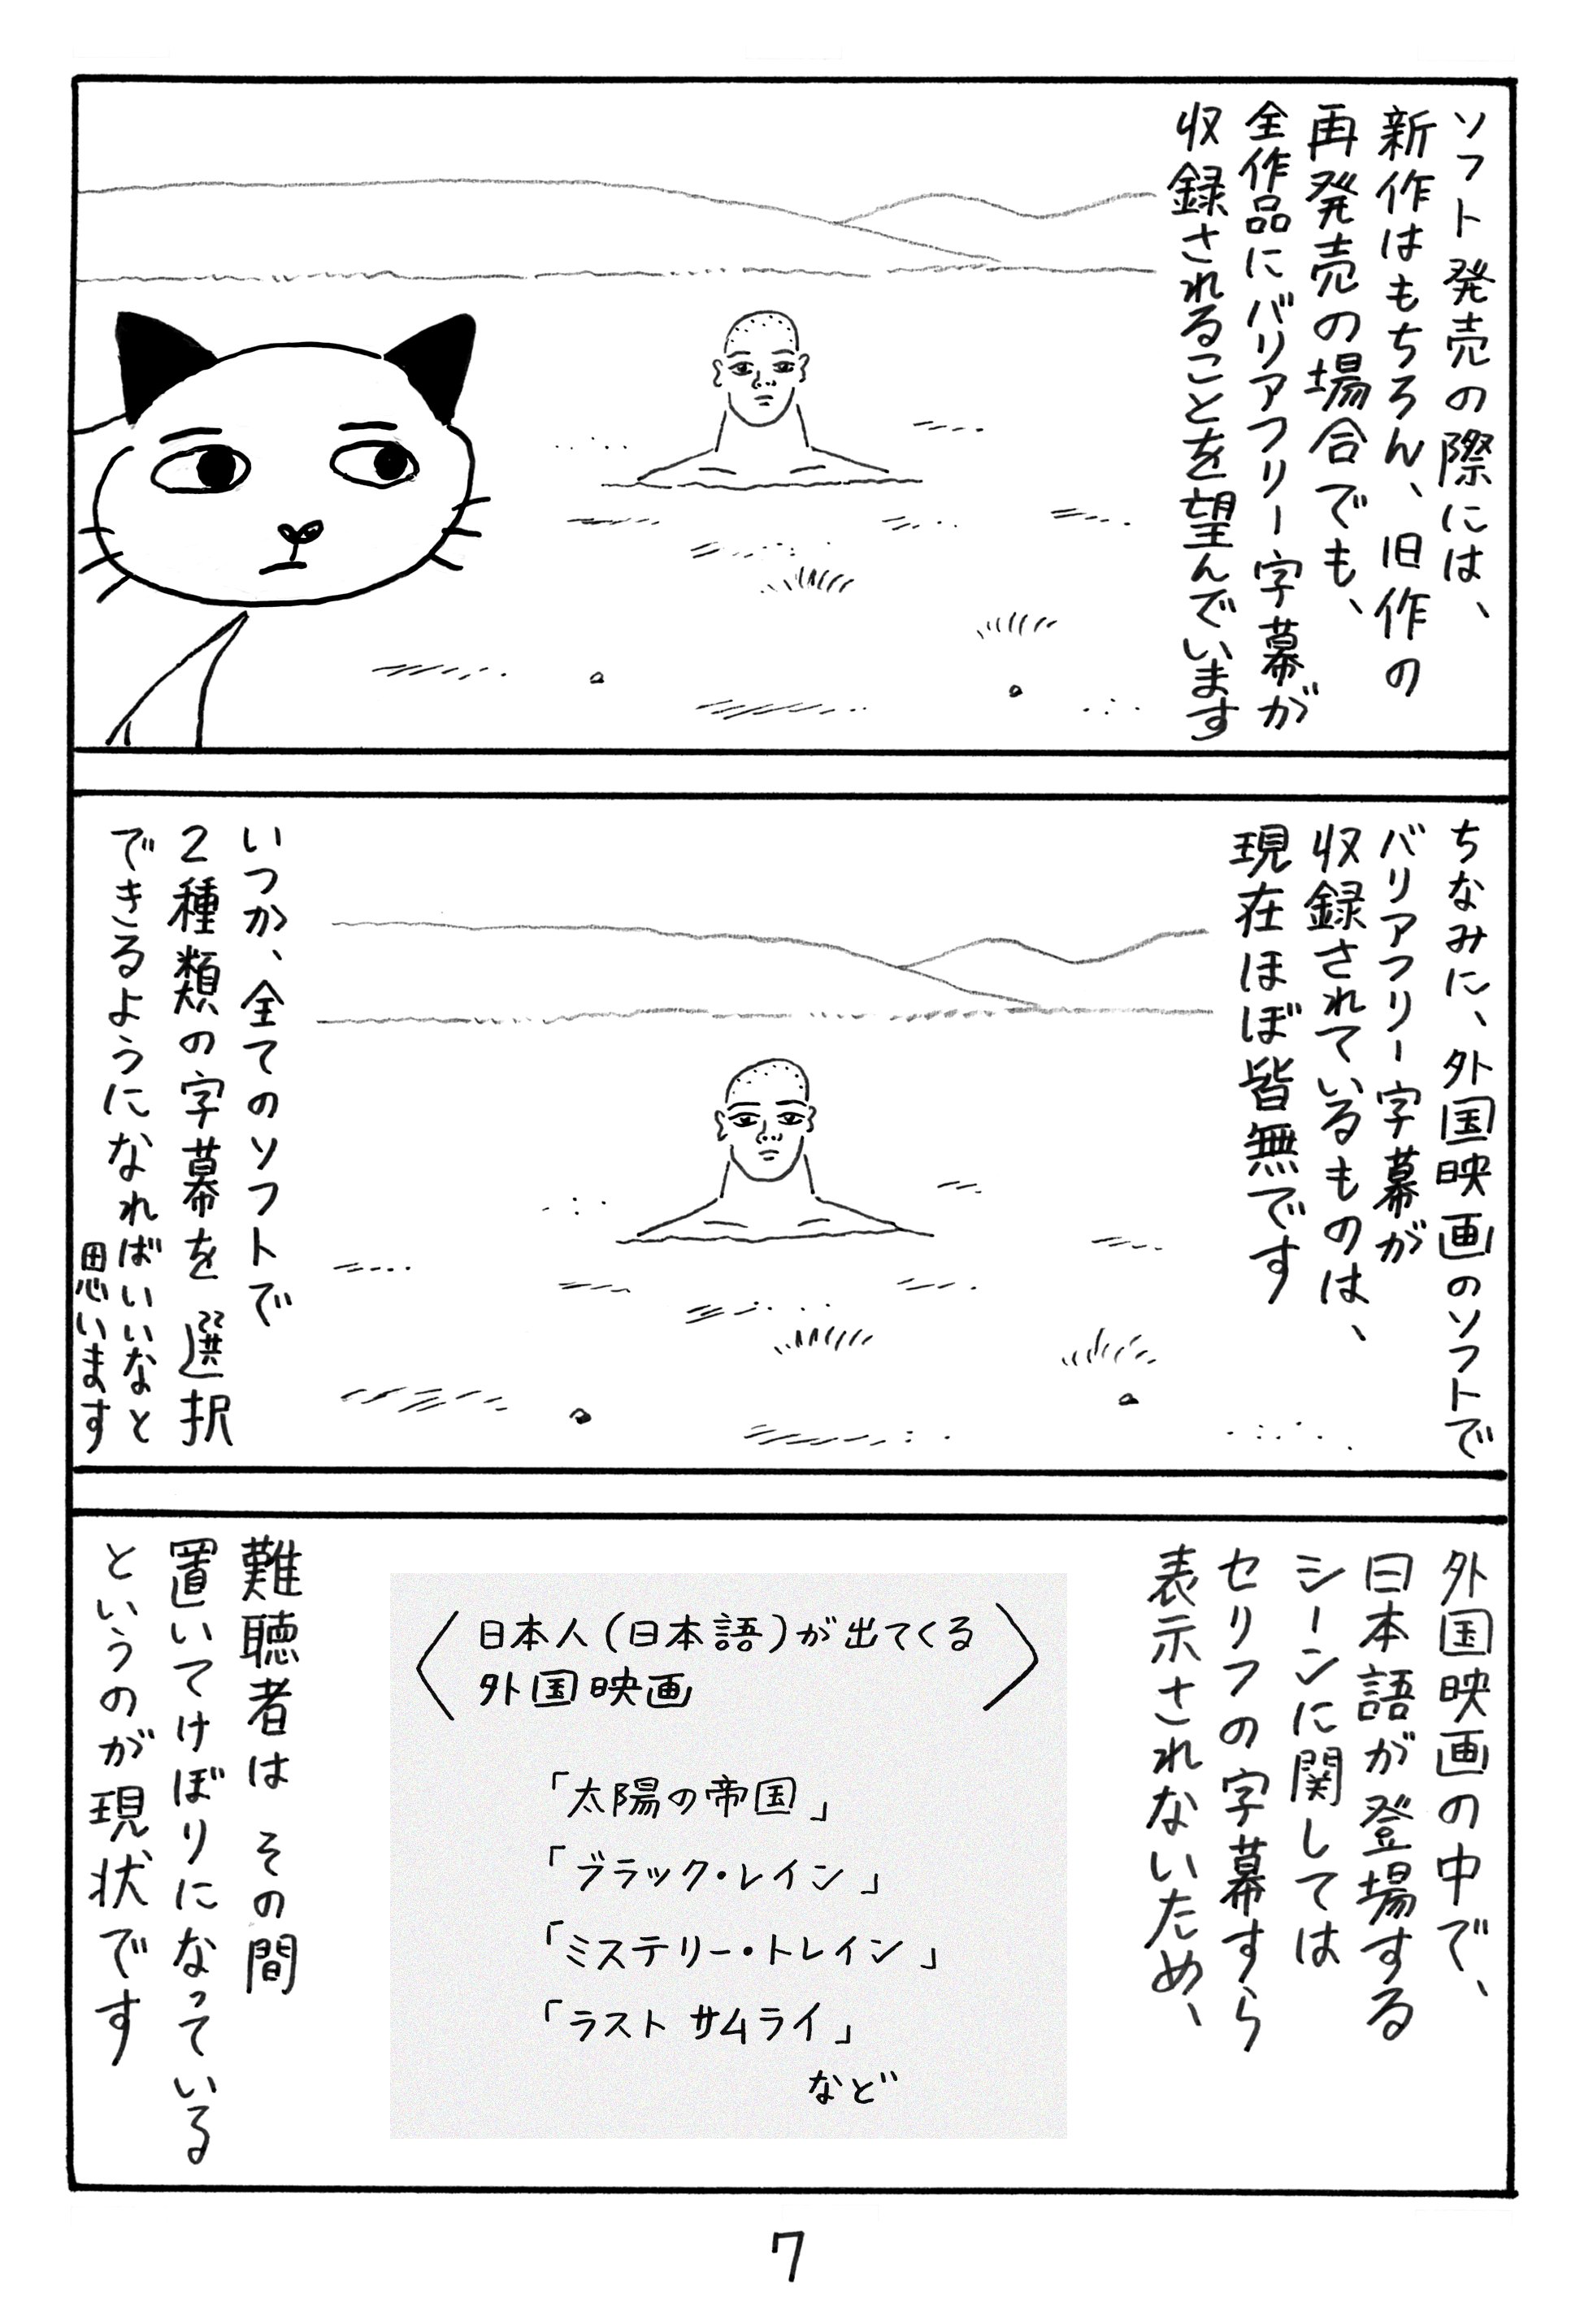 ソフト発売の際には、
新作はもちろん、旧作の
再発売の場合でも、
全作品にバリアフリー字幕が
収録されることを望んでいます
ちなみに、外国映画のソフトで
バリアフリー字幕が
収録されているものは、
現在ほぼ皆無です
いつか、全てのソフトで
2種類の字幕を選択
できるようになればいいなと
思います
外国映画の中で、
日本語が登場する
シーンに関しては
セリフの字幕すら
表示されないため、
〈日本人(日本語)が出てくる
外国映画〉
「太陽の帝国」
「ブラック・レイン」
「ミステリー・トレイン」
「ラスト サムライ」
など
難聴者は その間
置いてけぼりになっている
というのが現状です
7